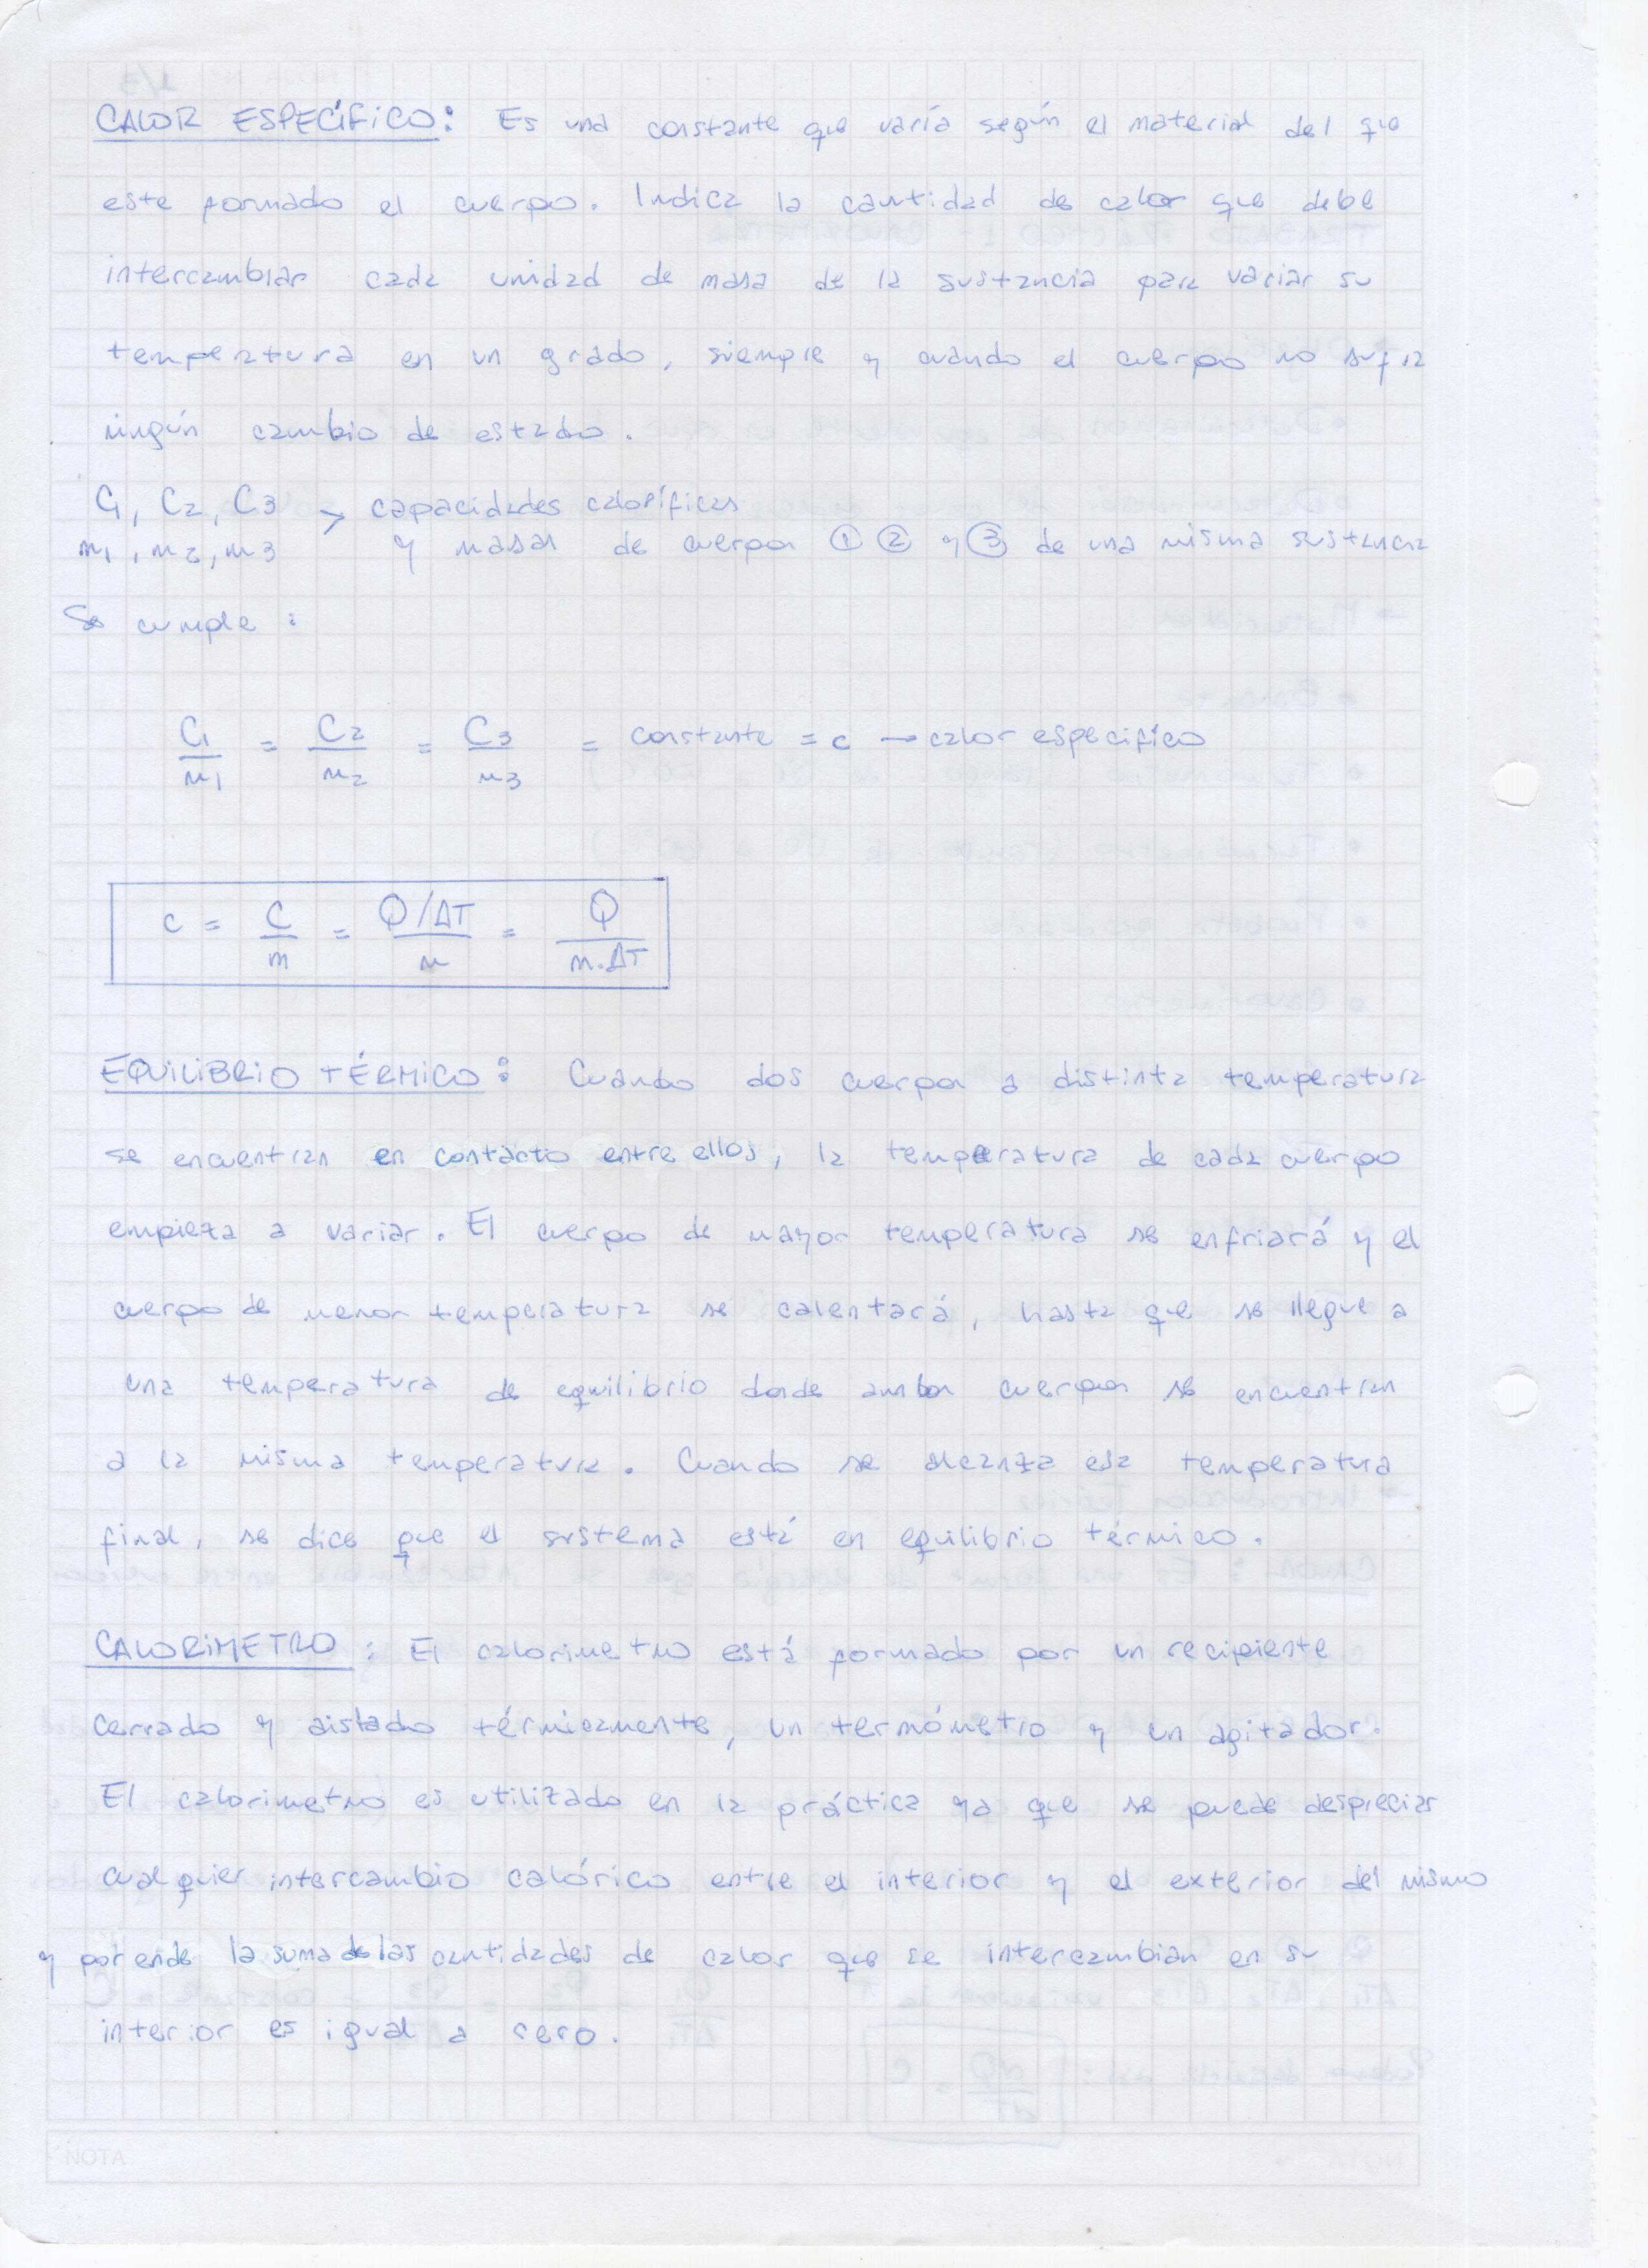 CALOR ESPECÍFICO: Es una constante que varía según el material del que
este formado el cuerpo. Indica la cantidad de calor que debe
intercambiar cada unidad de masa de la sustancia para variar su
temperatura en un grado, siempre y cuando el cuerpo no sufra
ningún cambio de estado.
C1, C2, C3 > capacidades caloríficas
m1, m2, m3 y masas de cuerpos ① ② y ③ de una misma sustancia
Se cumple:
C1/m1 = C2/m2 = C3/m3 = constante = c → calor especifico
c = C/m = Q/ΔT/m = Q/m.ΔT
EQUILIBRIO TÉRMICO: Cuando dos cuerpos a distinta temperatura
se encuentran en contacto entre ellos, la temperatura de cada cuerpo
empieza a variar. El cuerpo de mayor temperatura se enfriará y el
cuerpo de menor temperatura se calentará, hasta que se llegue a
una temperatura de equilibrio donde ambos cuerpos se encuentran
a la misma temperatura. Cuando se alcanza esa temperatura
final, se dice que el sistema está en equilibrio térmico.
CALORIMETRO: El calorimetro está formado por un recipiente
cerrado y aislado térmicamente, un termómetro y un agitador.
El calorimetro es utilizado en la práctica ya que se puede despreciar
cualquier intercambio calórico entre el interior y el exterior del mismo
y por ende la suma de las cantidades de calor que se intercambian en su
interior es igual a cero.
NOTA